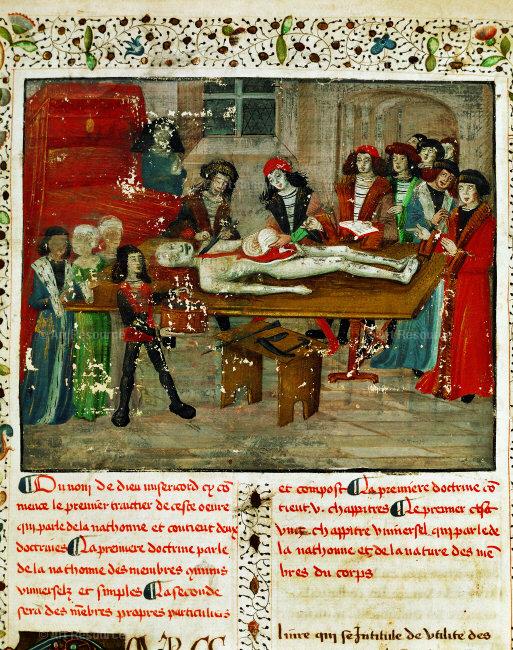 Du nom de dieu misericord cy cō
mence le premier traictier de ceste oeuvre
qui parle de la nathomie et contient deux
doctrines La premiere doctrine parle
de la nathomie des membres cōmuns
vniuerselz et simples La seconde
sera des mēbres propres particuliers
et compost La premiere doctrine cō
tient .v. chappitres Le premier est
vng chappitre vniuersel qui parle de
la nathomie et de la nature des mē
bres du corps
liure qui se Intitule de vtilite des